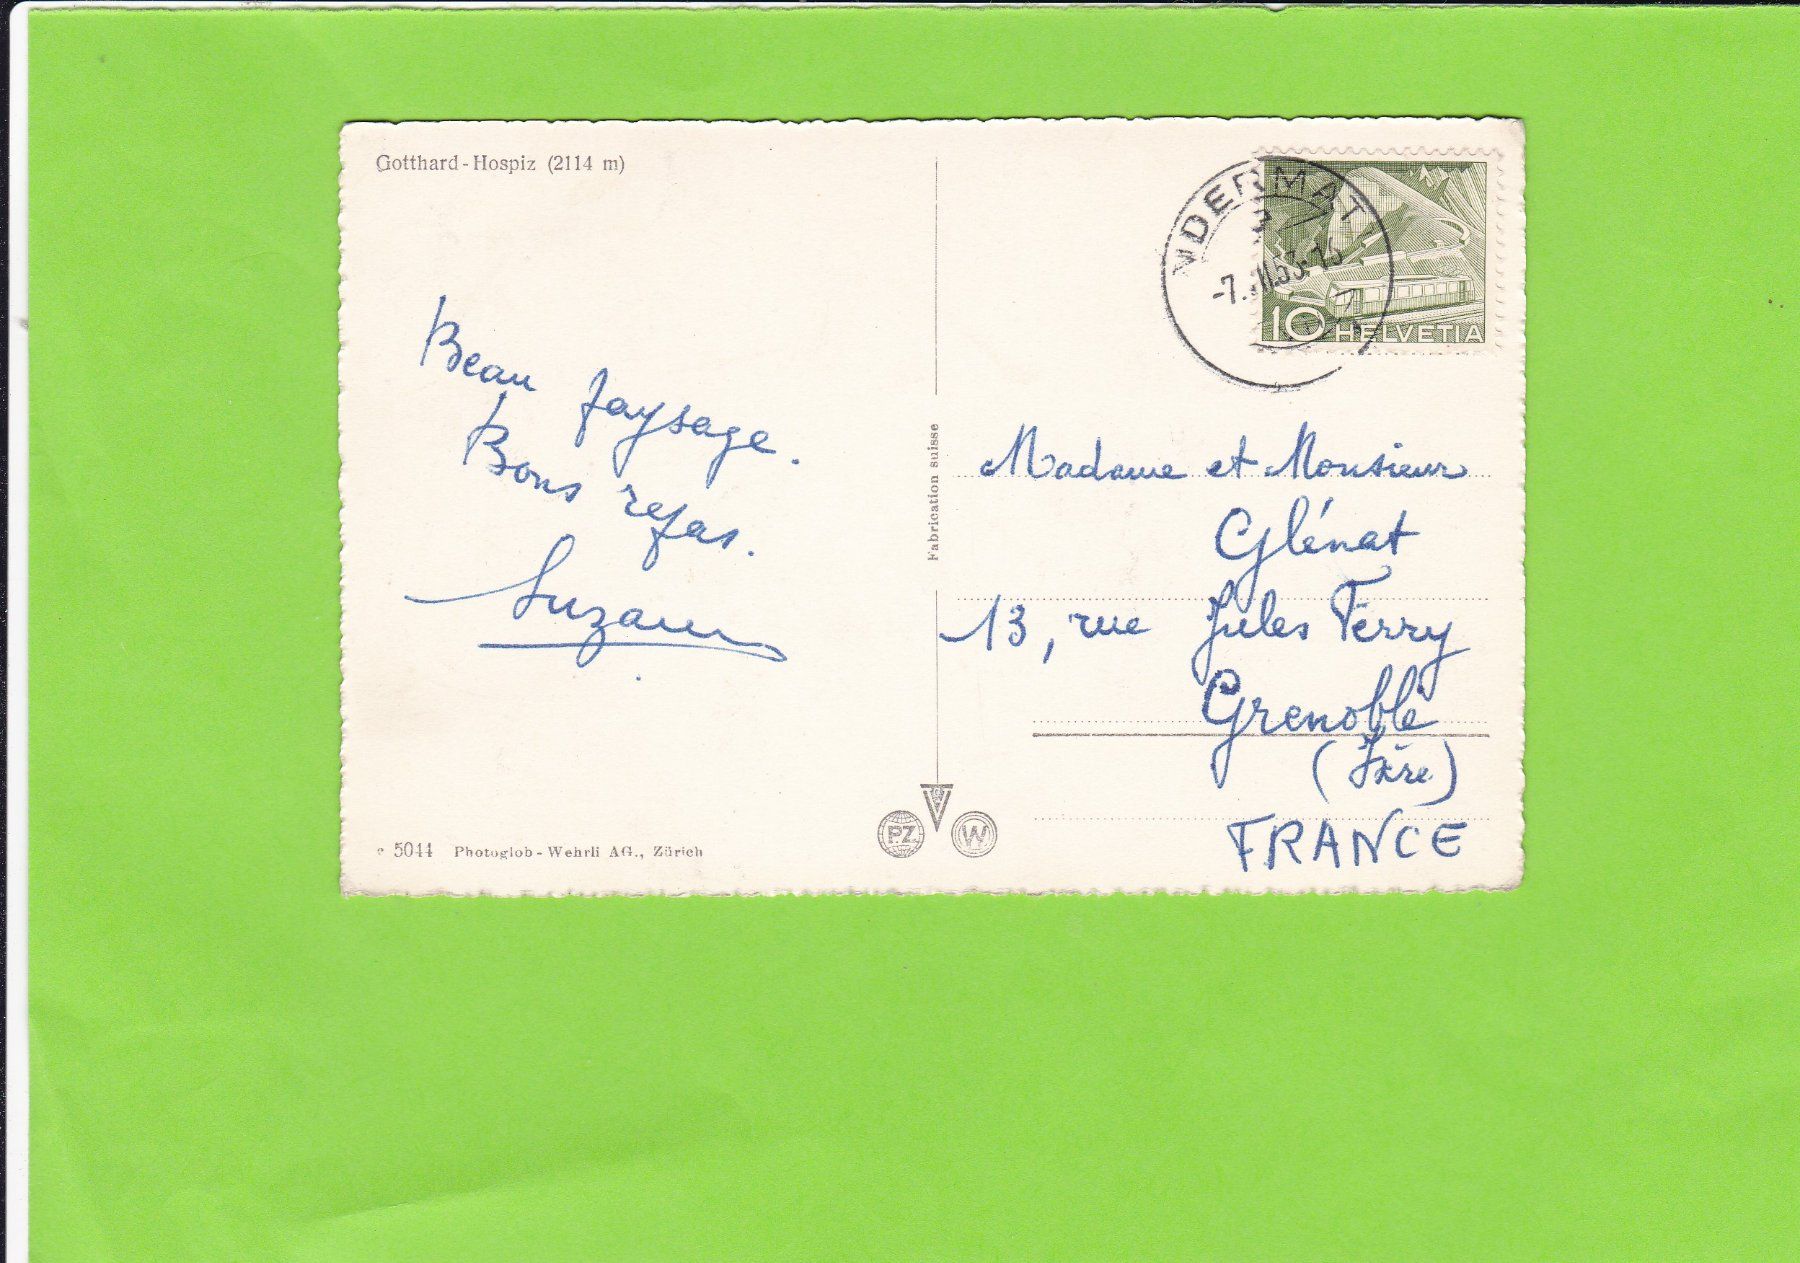 Gotthard-Hospiz (2114 m)
Beau paysage.
Bons repas.
Suzanne
e 5044 Photoglob-Wehrli AG., Zürich
Fabrication suisse
PZ
W
NDERMAT
10 HELVETIA
Madame et Monsieur
Glénat
13, rue Jules Ferry
Grenoble
(Isère)
FRANCE